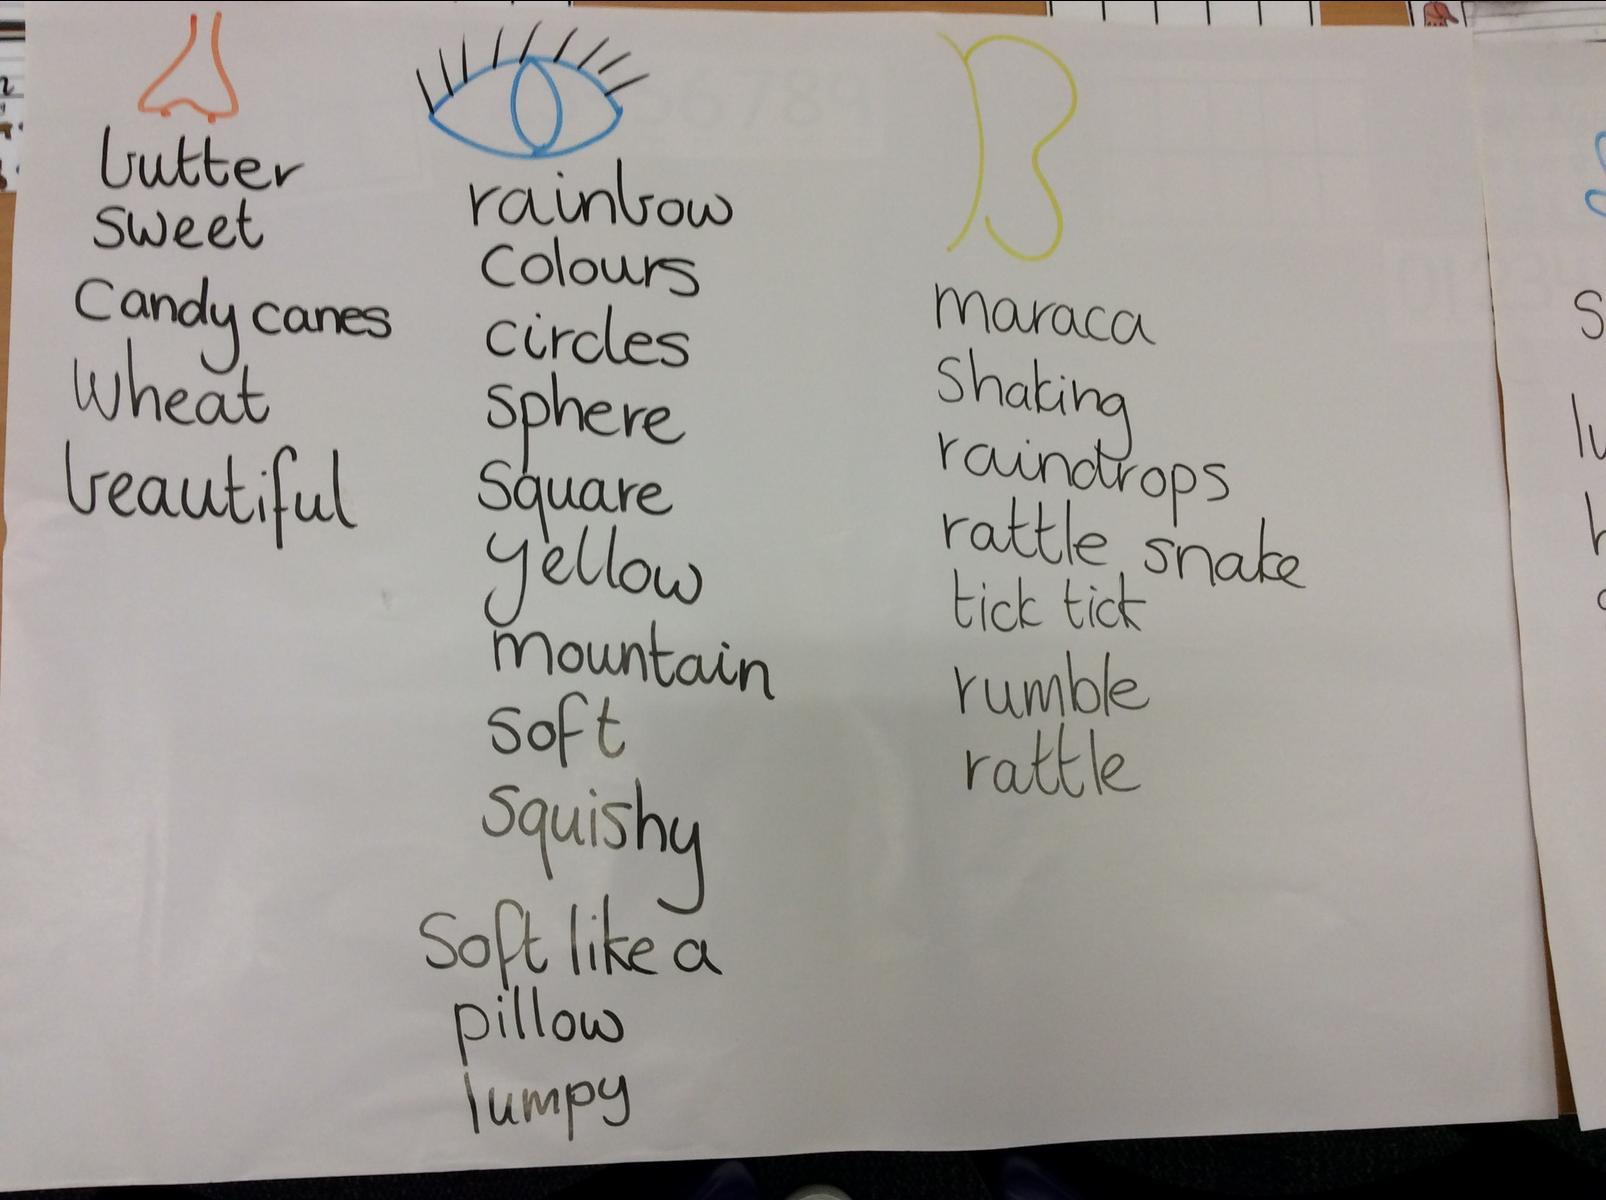 butter
sweet
Candy canes
Wheat
beautiful
rainbow
Colours
circles
Sphere
Square
Yellow
Mountain
Soft
Squishy
Soft like a
pillow
lumpy
Maraca
Shaking
raindrops
rattle snake
tick tick
rumble
rattle